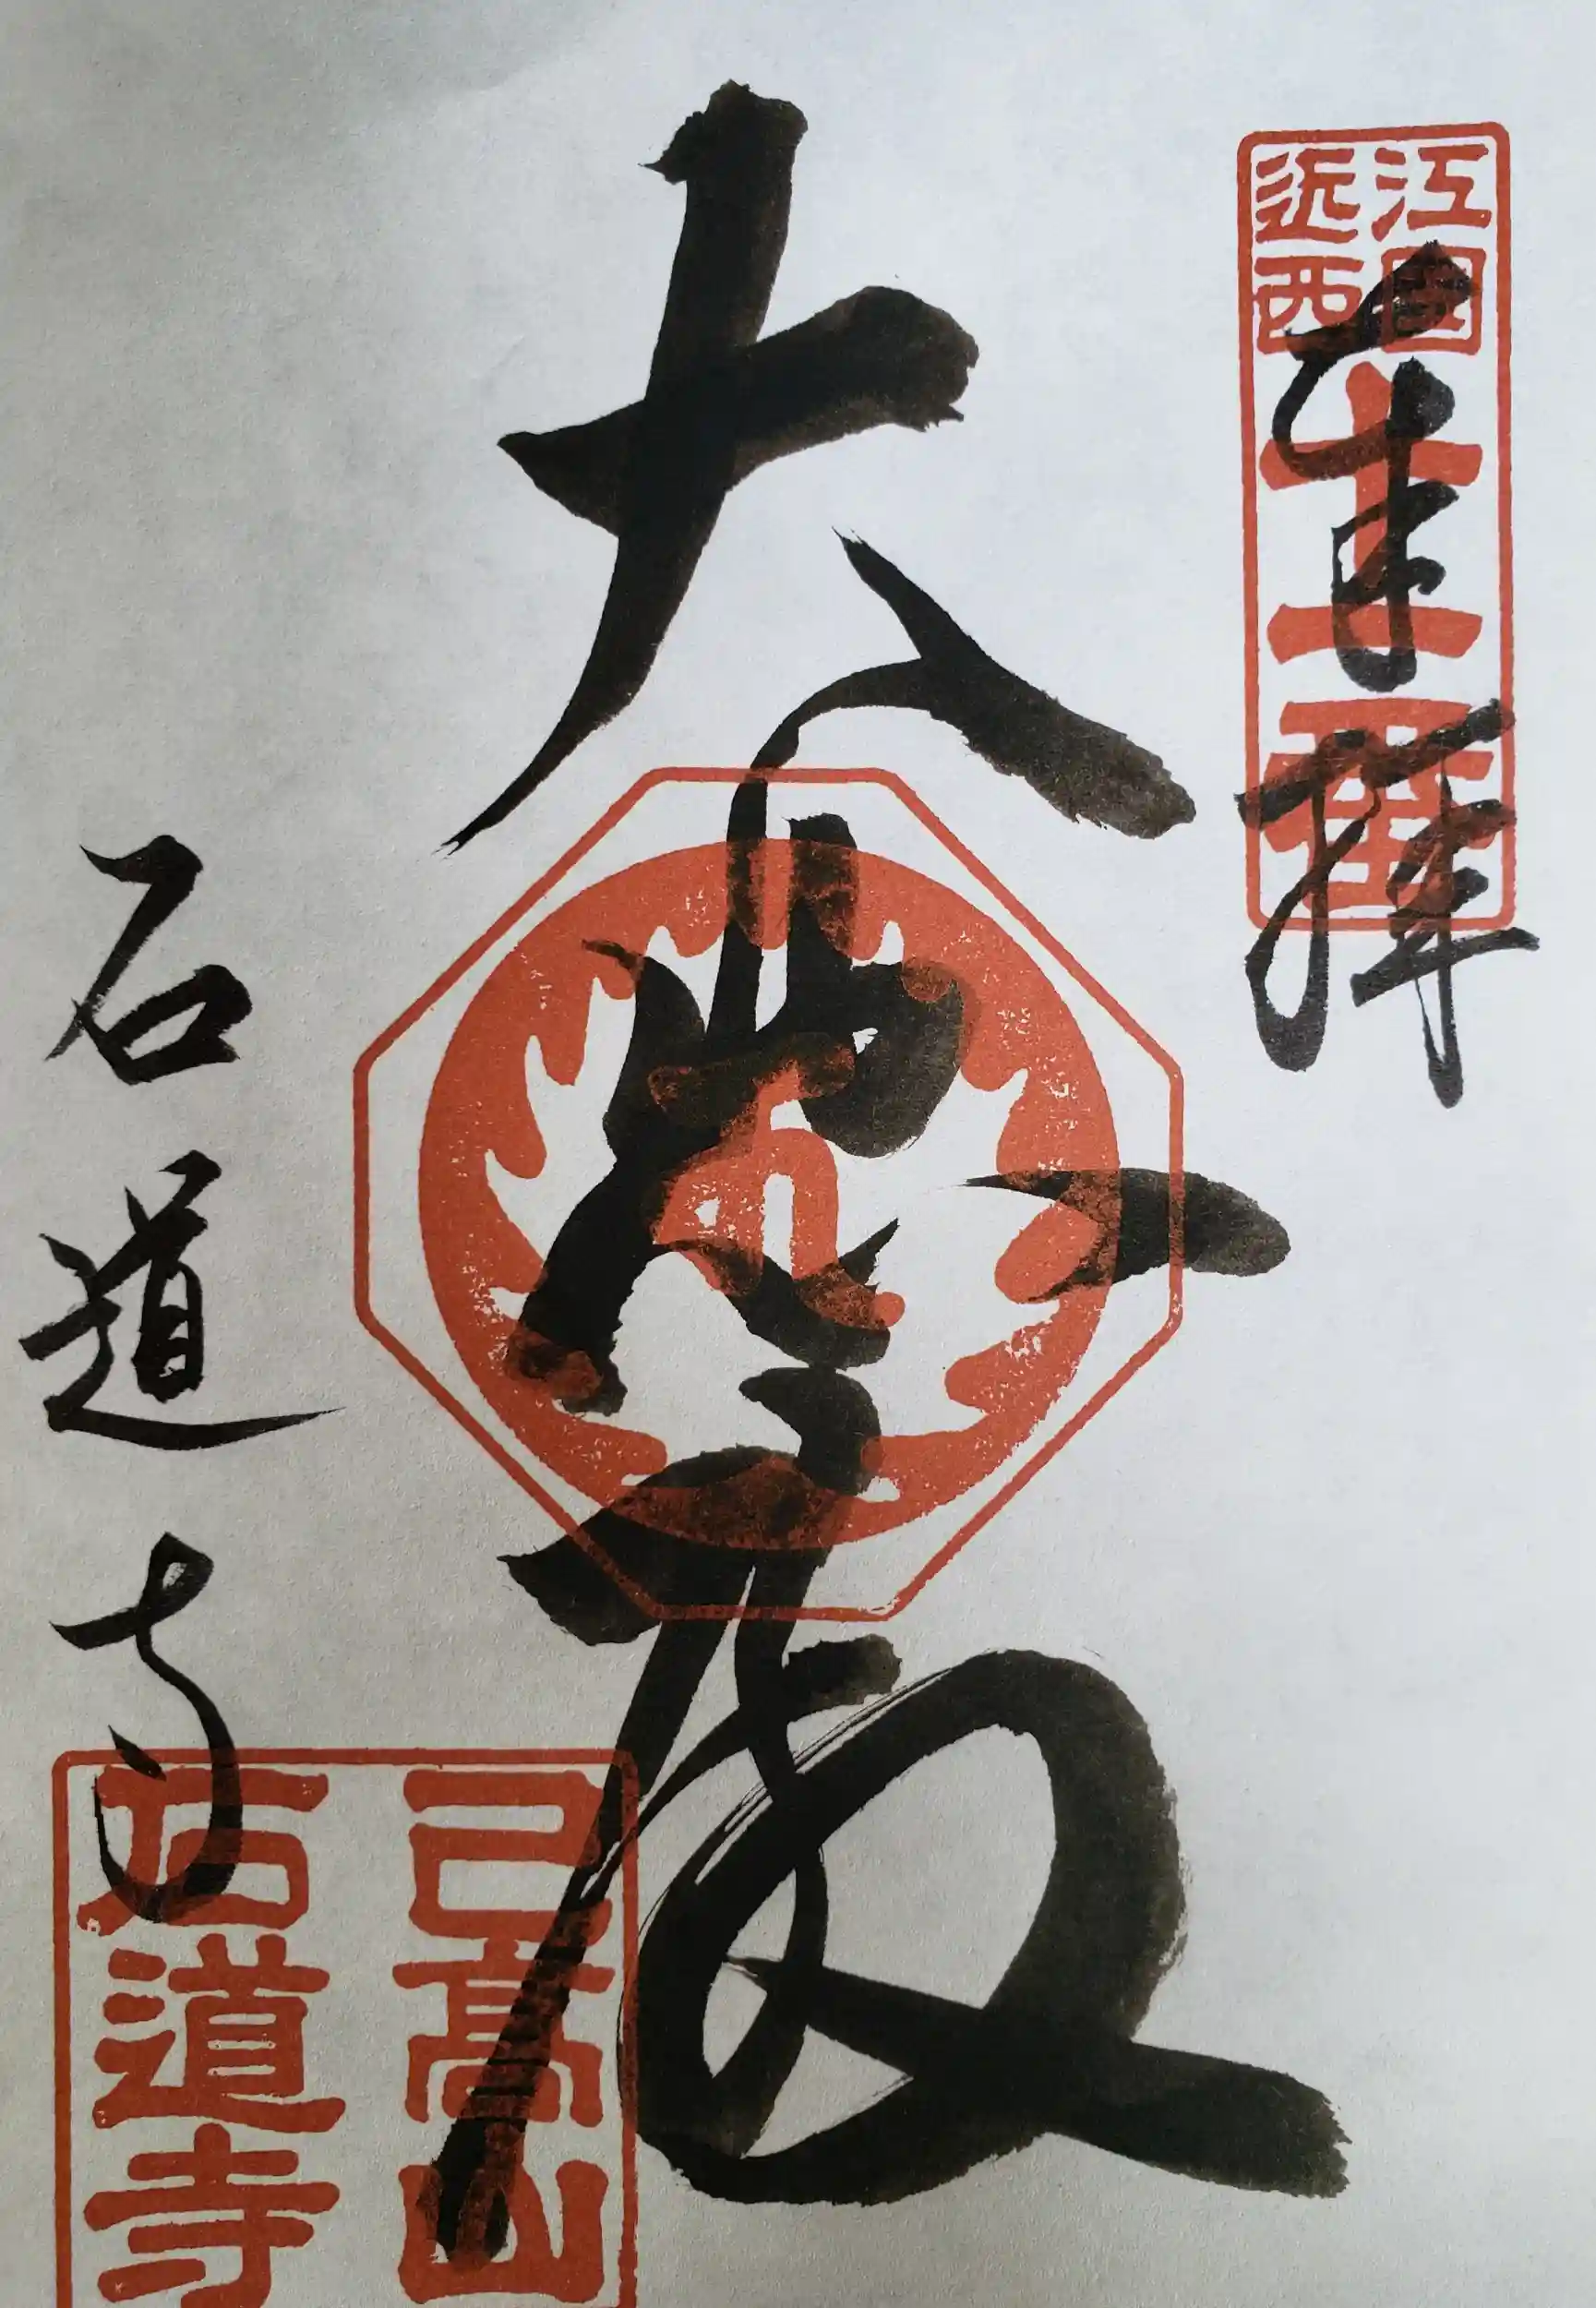 奉拝
近江
西國
十一番
大悲殿
石道寺
己高山
石道寺